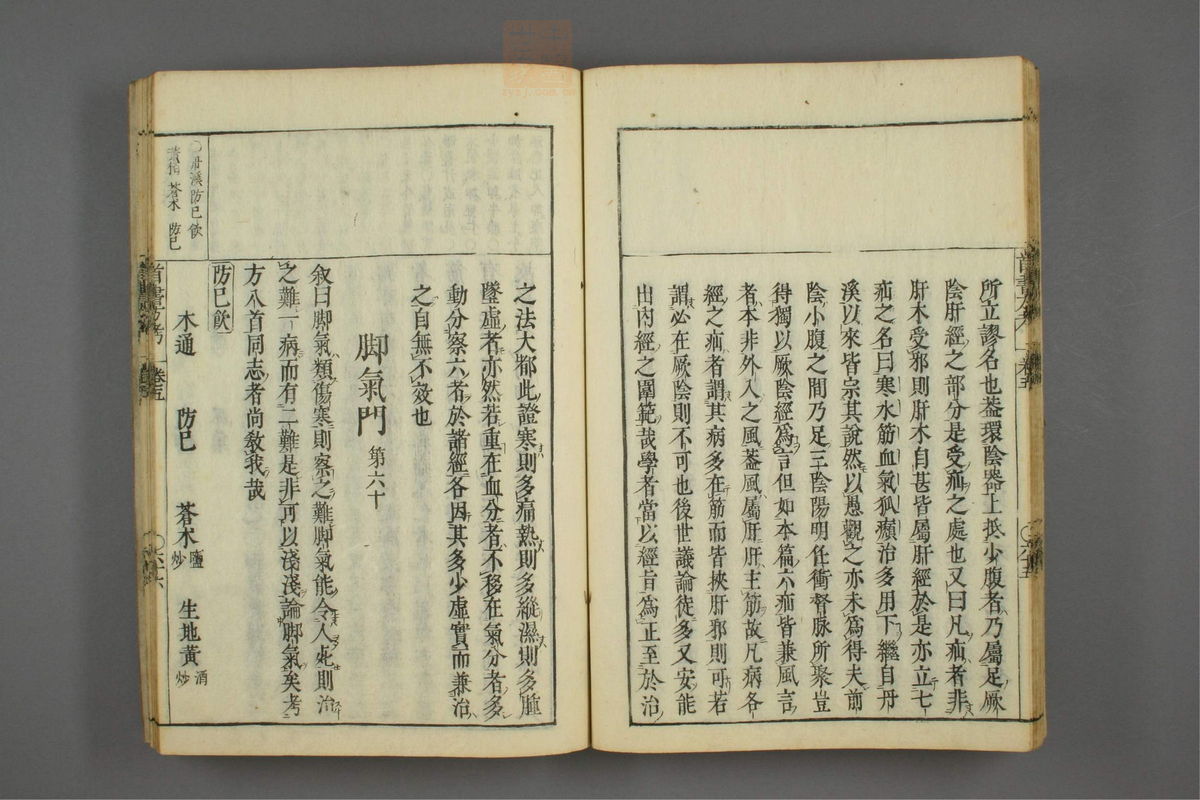 所立謬名也葢環陰器上抵少腹者乃屬足厥
陰肝經之部分是受疝之處也又曰凡疝者非
肝木受邪則肝木自甚皆屬肝經於是亦立七
疝之名曰寒水筋血氣狐癩治多用下繼自丹
溪以來皆宗其說然以愚觀之亦未爲得夫前
陰小腹之間乃足三陰陽明任衝督脉所聚豈
得獨以厥陰經爲言但如本篇六疝皆兼風言
者本非外入之風葢風屬肝肝主筋故凡病各
經之疝者謂其病多在筋而皆挾肝邪則可若
謂必在厥陰則不可也後世議論徒多又安能
出內經之圍範哉學者當以經旨爲正至於治
之法大都此證寒則多痛熱則多縱濕則多腫
墜虛者亦然若重在血分者不移在氣分者多
動分察六者於諸經各因其多少虛實而兼治
之自無不效也
脚氣門 第六十
叙曰脚氣類傷寒則察之難脚氣能令人死則治
之難一病而有二難是非可以淺淺論脚氣矣考
方八首同志者尚教我哉
防巳飲
木通 防巳 蒼术鹽炒 生地黃酒炒
〇丹溪防巳飲
黃栢 蒼术 防巳
卷五
〇六十六
卷五
〇六十五